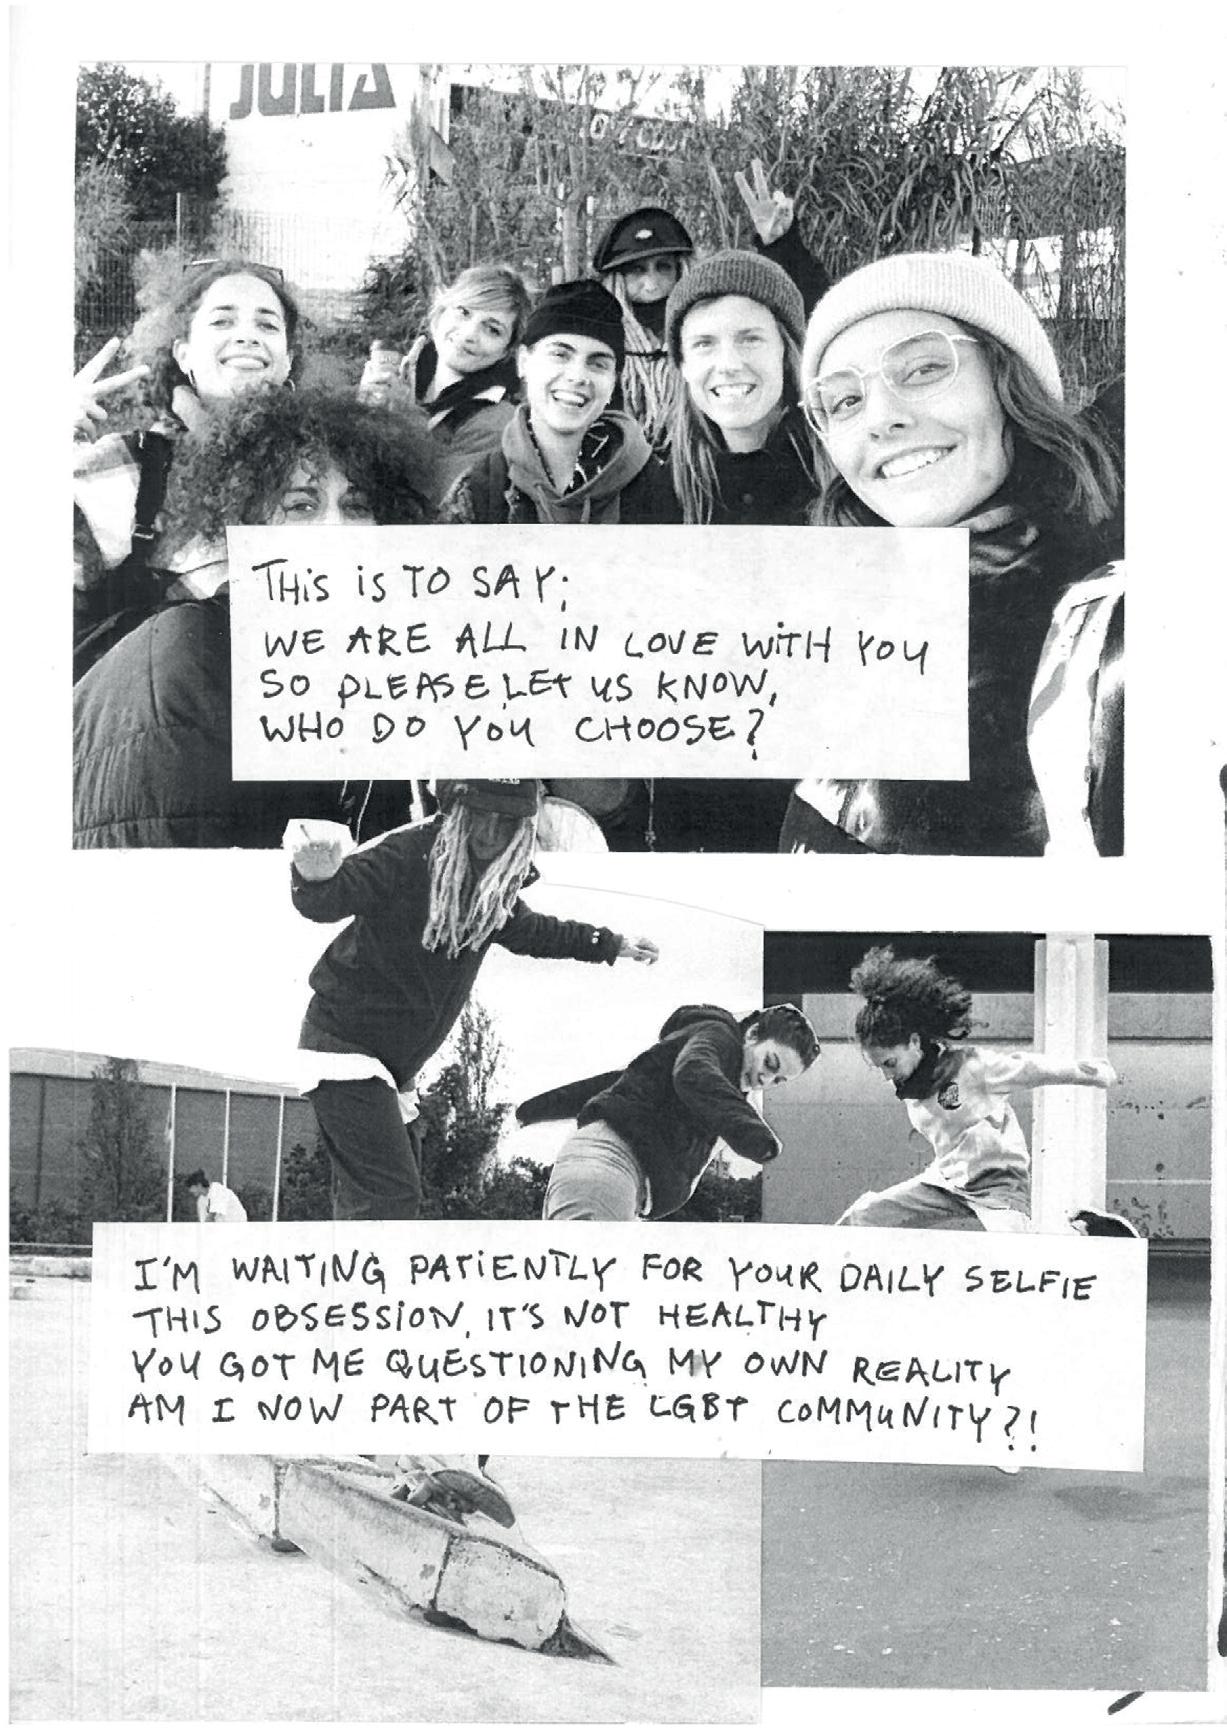 JULIA
THIS IS TO SAY;
WE ARE ALL IN LOVE WITH YOU
SO PLEASE, LET US KNOW,
WHO DO YOU CHOOSE?
I'M WAITING PATIENTLY FOR YOUR DAILY SELFIE
THIS OBSESSION, IT'S NOT HEALTHY
YOU GOT ME QUESTIONING MY OWN REALITY
AM I NOW PART OF THE LGBT COMMUNITY?!